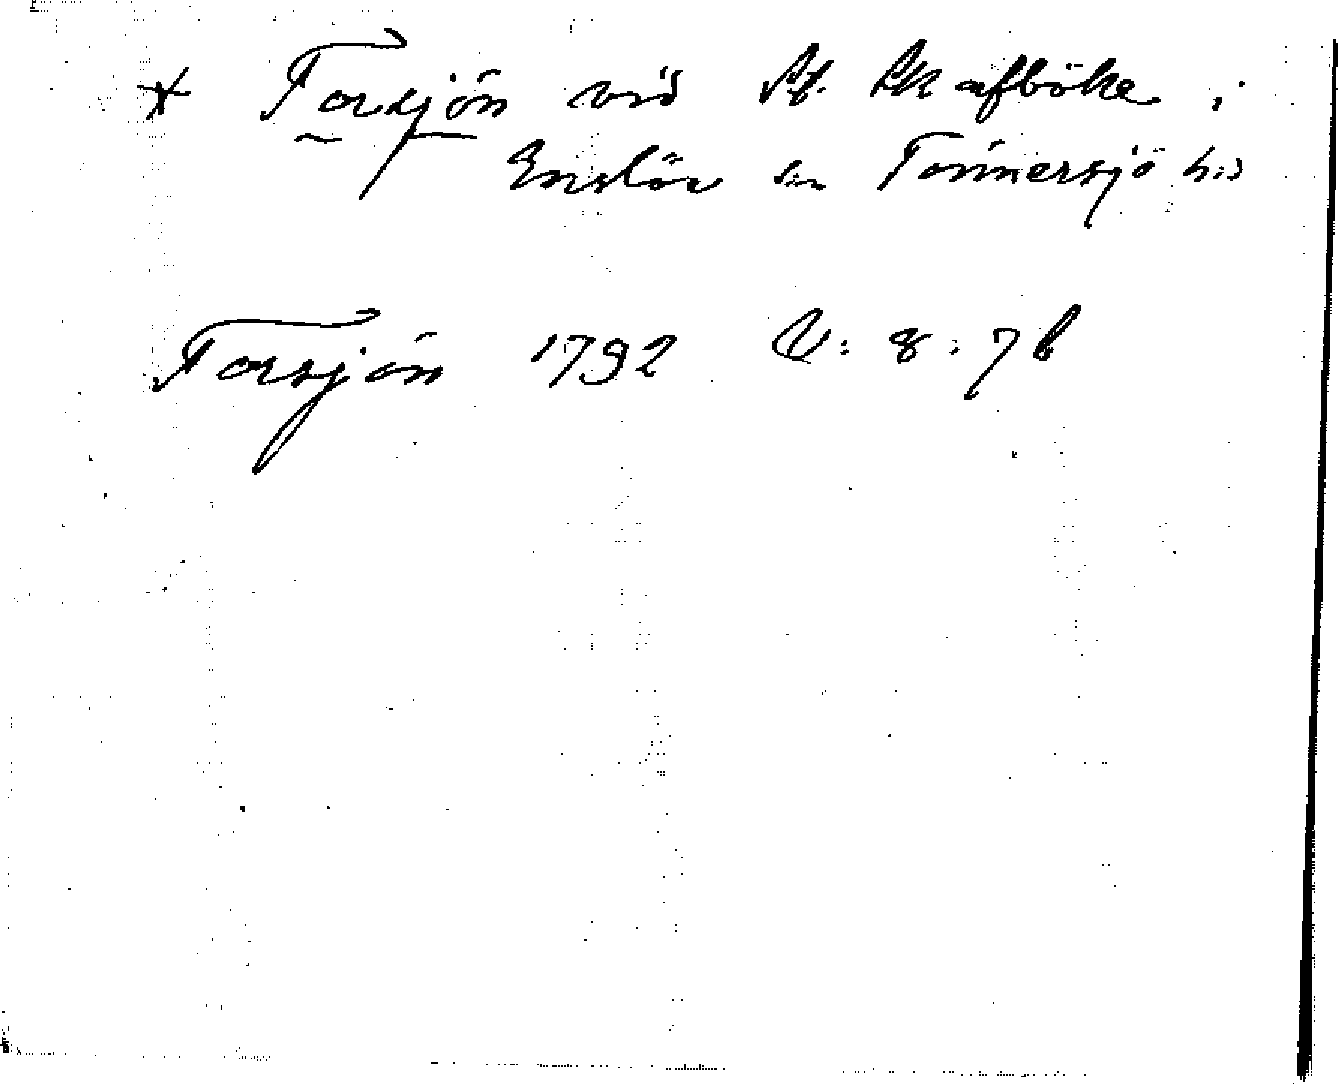 * Torsjön vid St. Skafböke i
Enslöv sn Tönnersjö hd
Torsjön 1792 U: 8: 7b